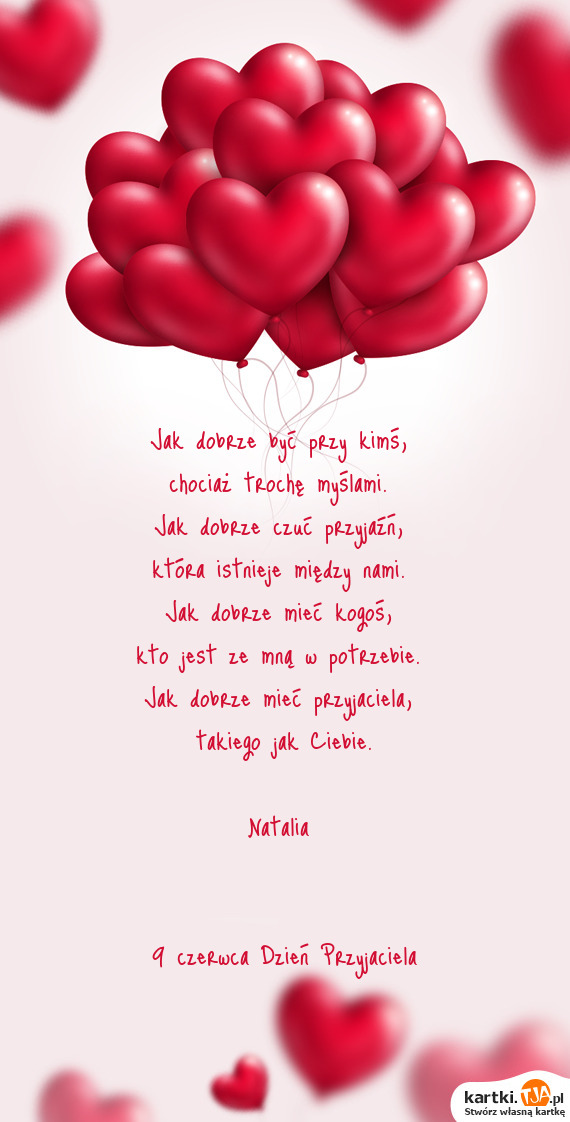 Jak dobrze być przy kimś,
chociaż trochę myślami.
Jak dobrze czuć przyjaźń,
która istnieje między nami.
Jak dobrze mieć kogoś,
kto jest ze mną w potrzebie.
Jak dobrze mieć przyjaciela,
takiego jak Ciebie.
Natalia
9 czerwca Dzień Przyjaciela
kartki.TJA.pl
Stwórz własną kartkę